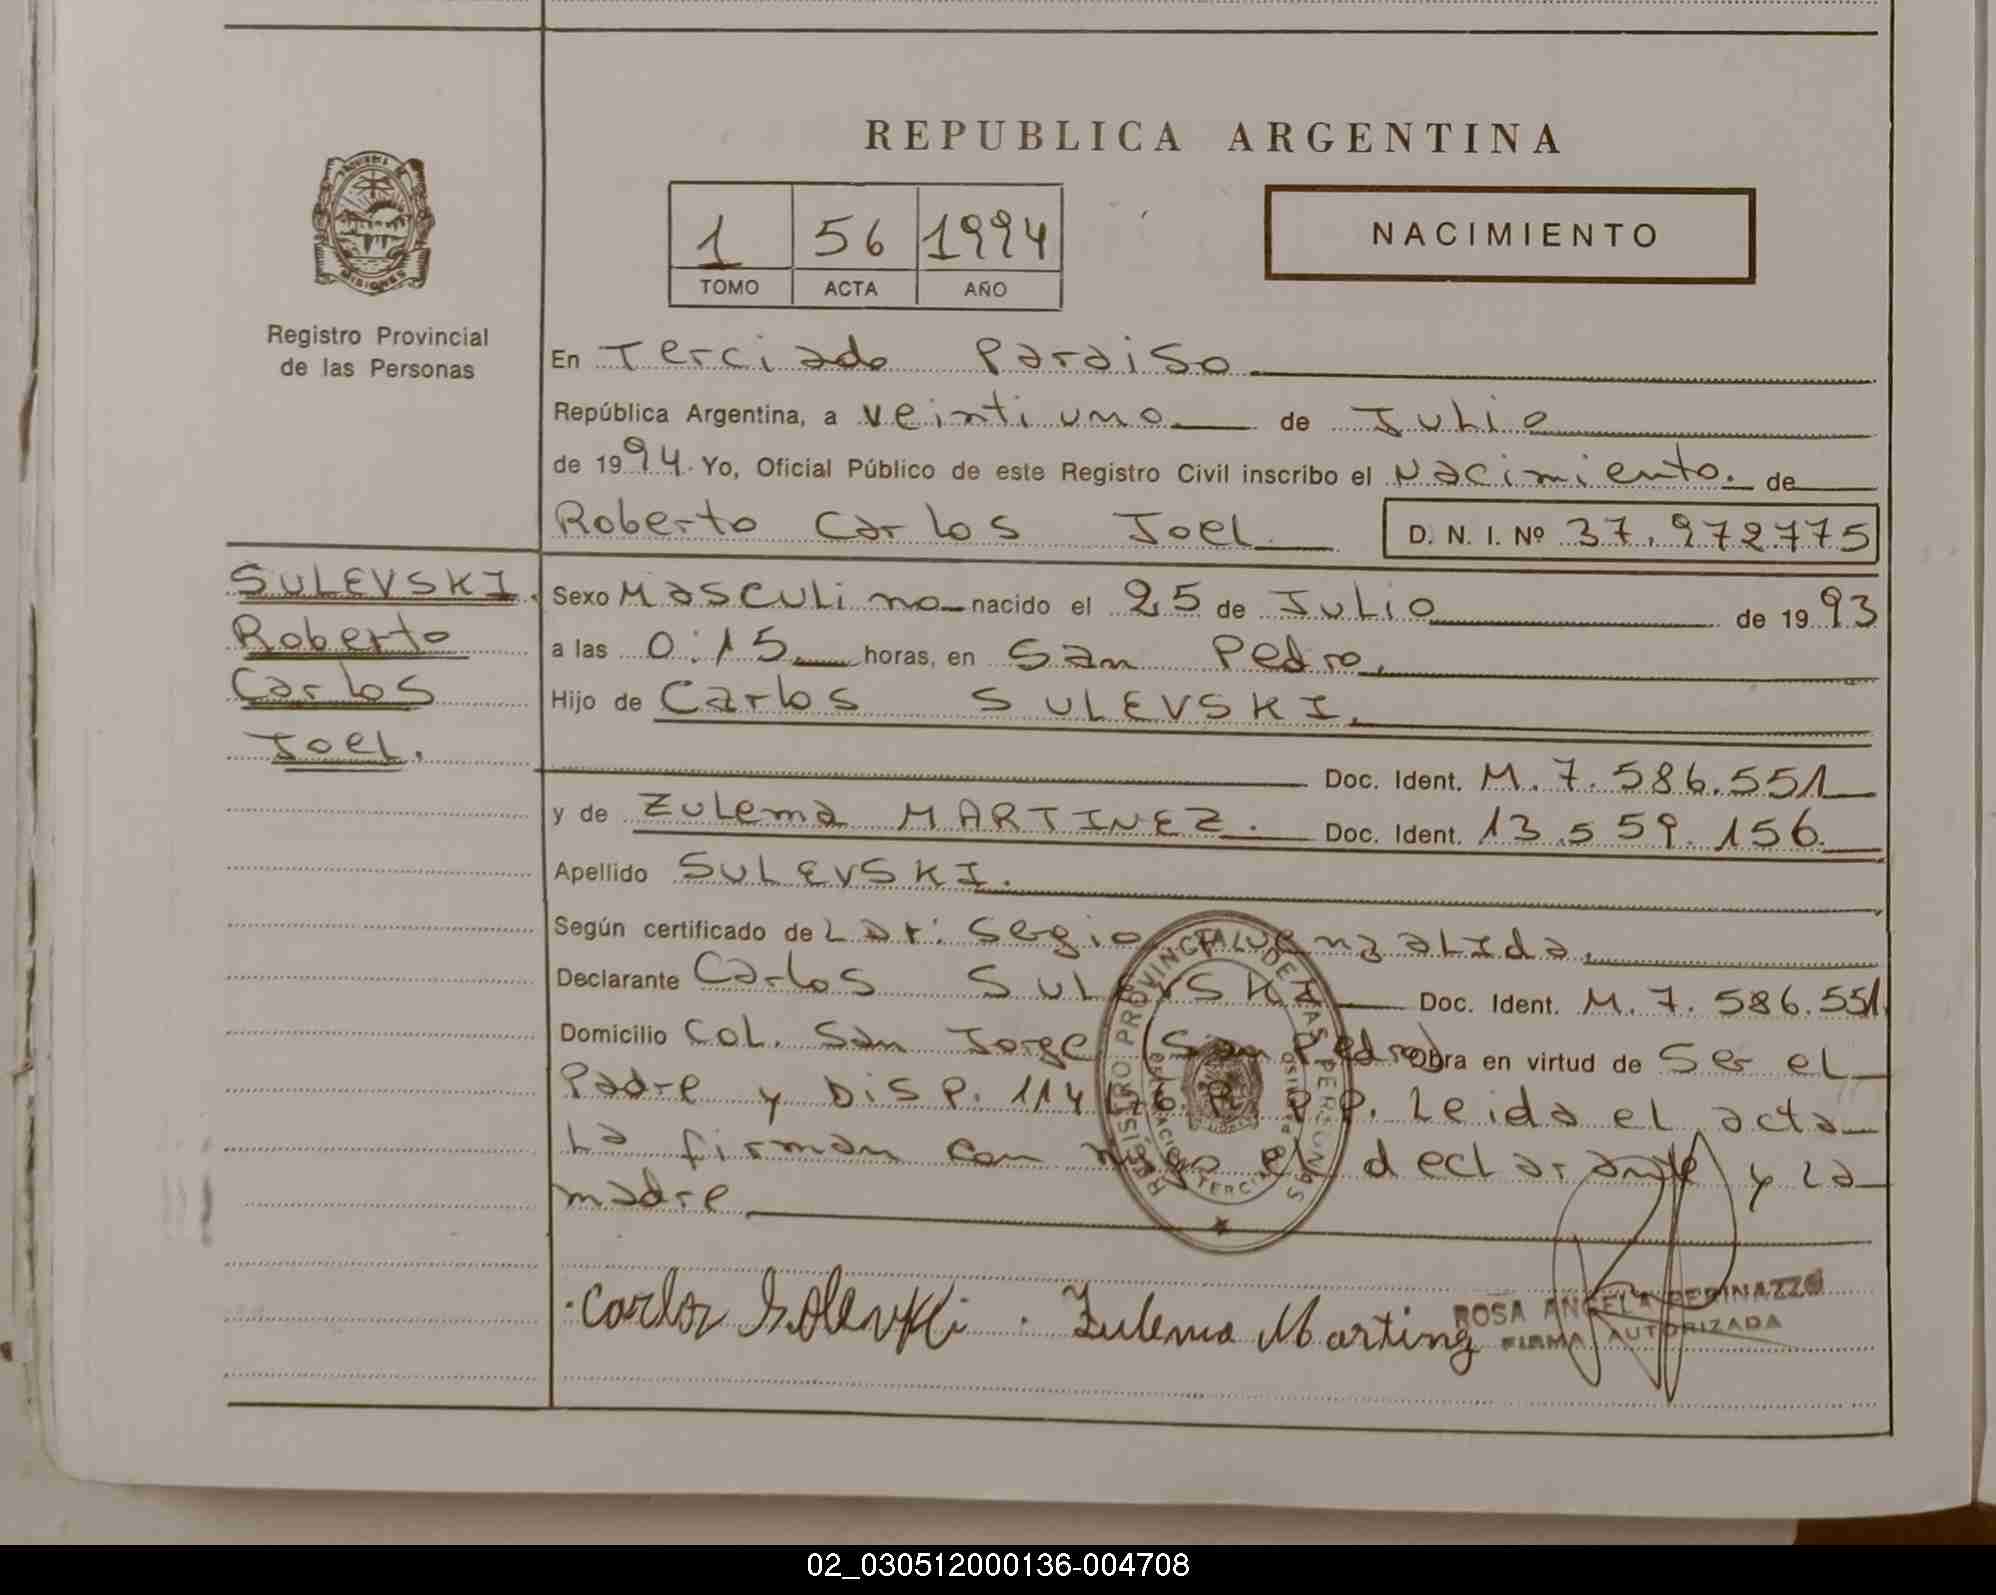 REPUBLICA ARGENTINA
1 56 1994
TOMO ACTA AÑO
NACIMIENTO
MISIONES
Registro Provincial
de las Personas
En Terciado Paraiso
República Argentina, a veintiuno de Julio
de 1994. Yo, Oficial Público de este Registro Civil inscribo el Nacimiento. de
Roberto Carlos Joel D. N. I. Nº 37.972775
SULEVSKI.
Roberto
Carlos
Joel.
Sexo Masculino nacido el 25 de Julio de 1993
a las 0:15 horas, en San Pedro.
Hijo de Carlos SULEVSKI.
Doc. Ident. M.7.586.551
y de Zulema MARTINEZ. Doc. Ident. 13.559.156.
Apellido SULEVSKI.
Según certificado de Sergio
Declarante Carlos SULEVSKI Doc. Ident. M.7.586.551.
Domicilio Col. San Jorge (San Pedro) Obra en virtud de Ser el
Padre y Disp. 114 Leida el acta
La firman con migo el declarante y La
madre
REGISTRO PROVINCIAL DE LAS PERSONAS
Carlos Zulema
ROSA ANGELA
FIRMA AUTORIZADA
02_030512000136-004708